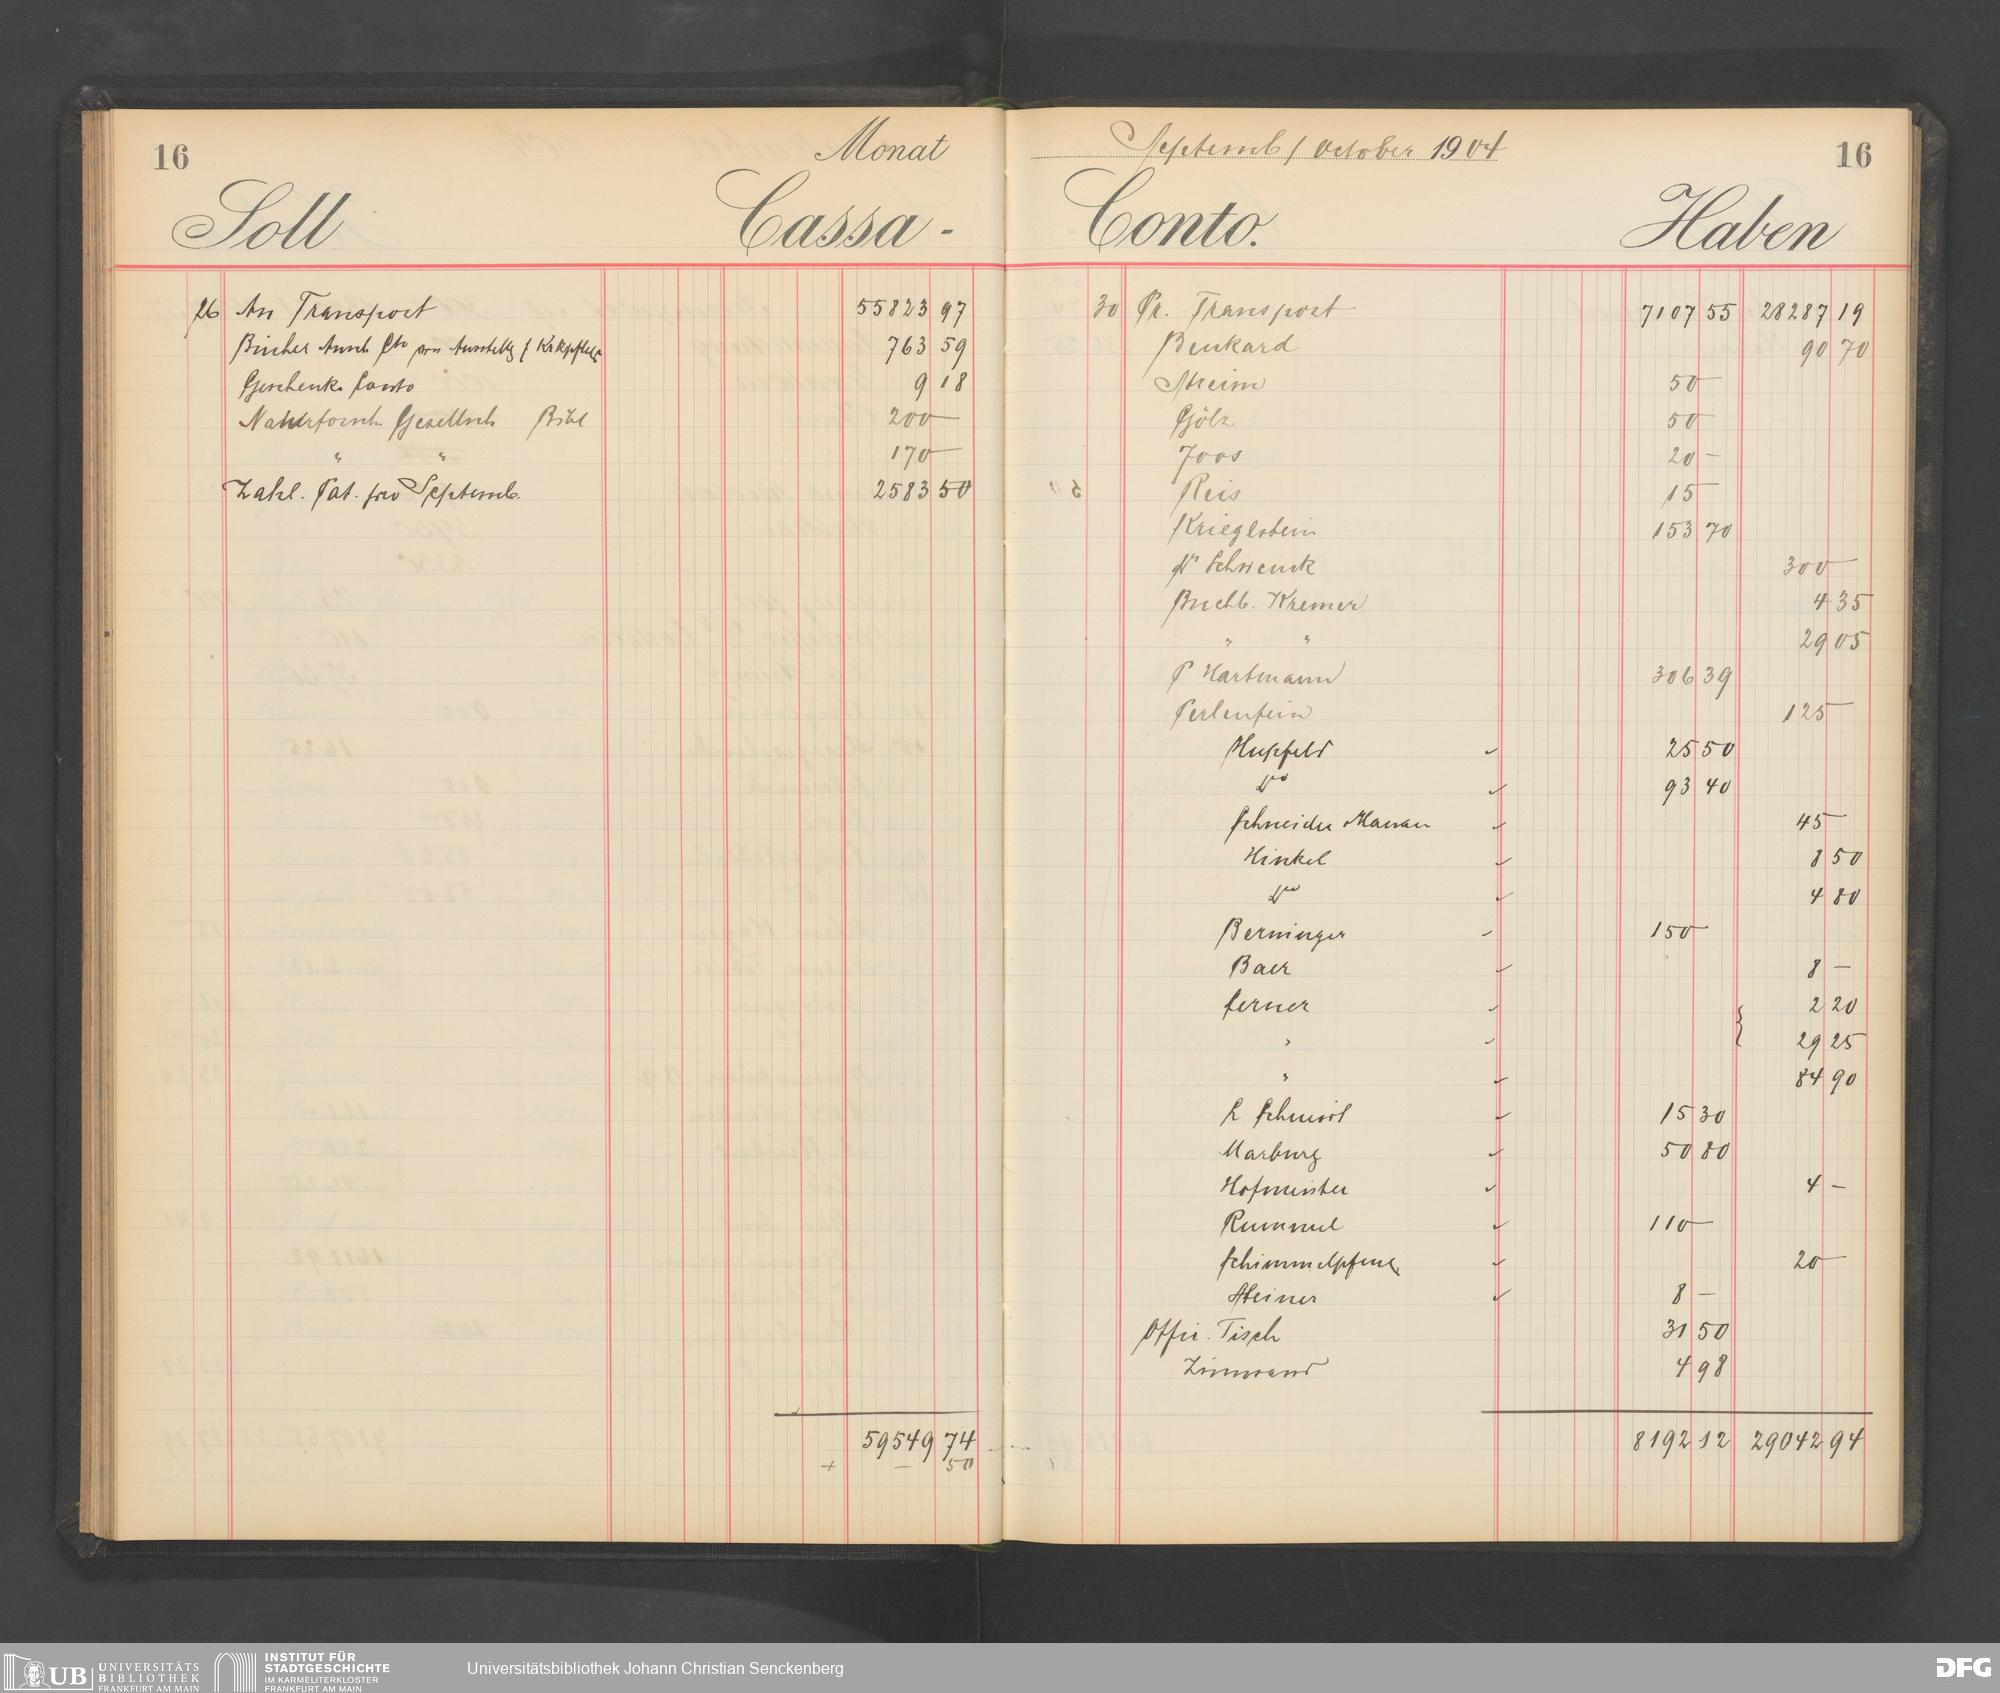 16 Monat
Soll Cassa-
26 An Transport 55823 97
Bücher Ansch Cto von Ausstellg f Krkpflege 763 59
Geschenk. Conto 9 18
Naturforsch Gesellsch Bibl 200 —
" " 170 —
Zahl. Pat. pro Septemb. 2583 50
59549 74
+ — 50
Septemb / October 1904 16
Conto. Haben
30 Pr. Transport 7107 55 28287 19
Benkard 90 70
Streim 50 —
Gölz 50 —
Joos 20 —
Reis 15 —
Krieglstein 153 70
Dr Schwenck 300 —
Buchb. Kremer 4 35
" " 29 05
P Hartmann 306 39
Perlenfein 125 —
Hupfeld 25 50
do 93 40
Schneider 45 —
Hinkel 8 50
do 4 80
Berninger 150 —
Baer 8 —
ferner 2 20
" 29 25
" 84 90
L Schmidt 15 30
Marburg 50 80
Hofmeister 4 —
Rummel 110 —
Schimmelpfeng 20 —
Steiner 8 —
Offic. Tisch 31 50
4 98
8192 12 29042 94
UB UNIVERSITÄTS
BIBLIOTHEK
FRANKFURT AM MAIN
INSTITUT FÜR
STADTGESCHICHTE
IM KARMELITERKLOSTER
FRANKFURT AM MAIN
Universitätsbibliothek Johann Christian Senckenberg
DFG